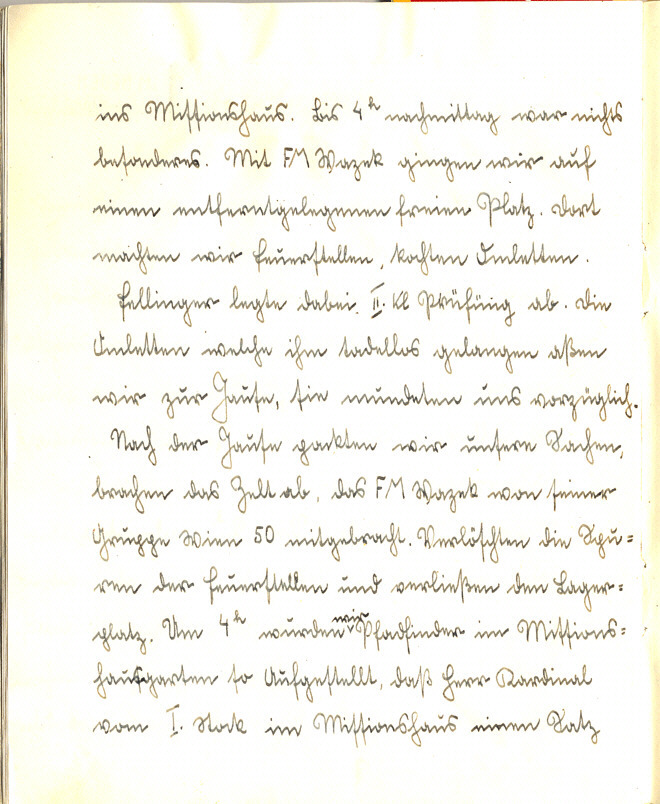 ins Missionshaus. Bis 4ʰ nachmittag war nichts
besonderes. Mit FM Wazek gingen wir auf
einen entferntgelegenen freien Platz. Dort
machten wir Feuerstellen, kochten Omletten.
Fellinger legte dabei II. Kl Prüfung ab. Die
Omletten welche ihm tadellos gelangen aßen
wir zur Jause, sie mundeten uns vorzüglich.
Nach der Jause packten wir unsere Sachen,
brachen das Zelt ab, das FM Wazek von seiner
Gruppe Wien 50 mitgebracht. Verlöschten die Spu=
ren der Feuerstellen und verließen den Lager=
platz. Um 4ʰ wurden wir Pfadfinder im Missions=
hausgarten so Aufgestellt, daß Herr Kardinal
vom I. Stock im Missionshaus einen Satz